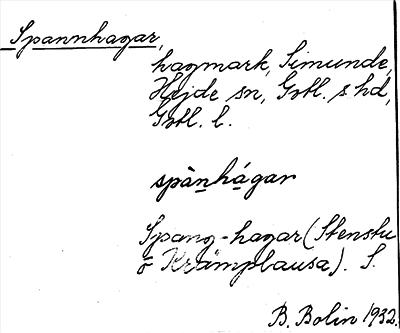 Spannhagar,
hagmark, Simunde,
Hejde sn, Gotl. s hd,
Gotl. l.
spànhágar
Spang-hagar (Stenstu
o Krämplausa). S.
B. Bolin 1932.